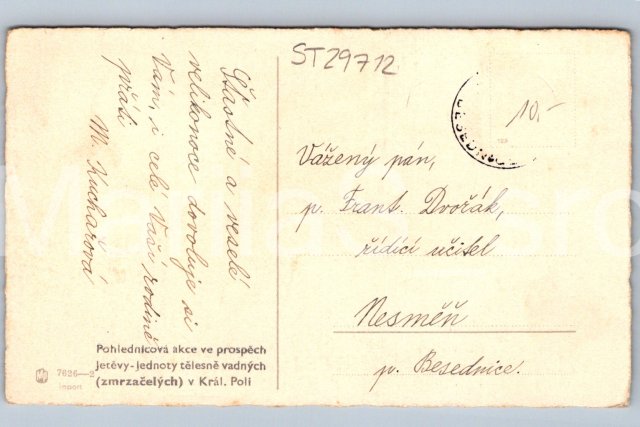 ST29712
10.-
Šťastné a veselé
velikonoce dovoluje si
Vám, i celé Vaší rodině
přáti
M. Kuchařová
Vážený pán,
p. Frant. Dvořák,
řídící učitel
Nesměň
p. Besednice.
Pohlednicová akce ve prospěch
jetěvy-jednoty tělesně vadných
(zmrzačelých) v Král. Poli
7626—2
Import